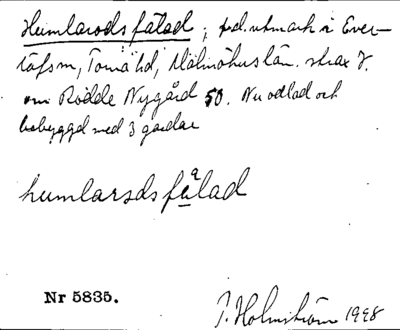 Humlarods fälad; f.d. utmark i Ever-
löfs sn, Torna hd, Malmöhus län. strax V.
om Rödde Nygård 50. Nu odlad och
bebyggd med 3 gårdar
humlarods fälad
Nr 5835.
P. Holmström 1998